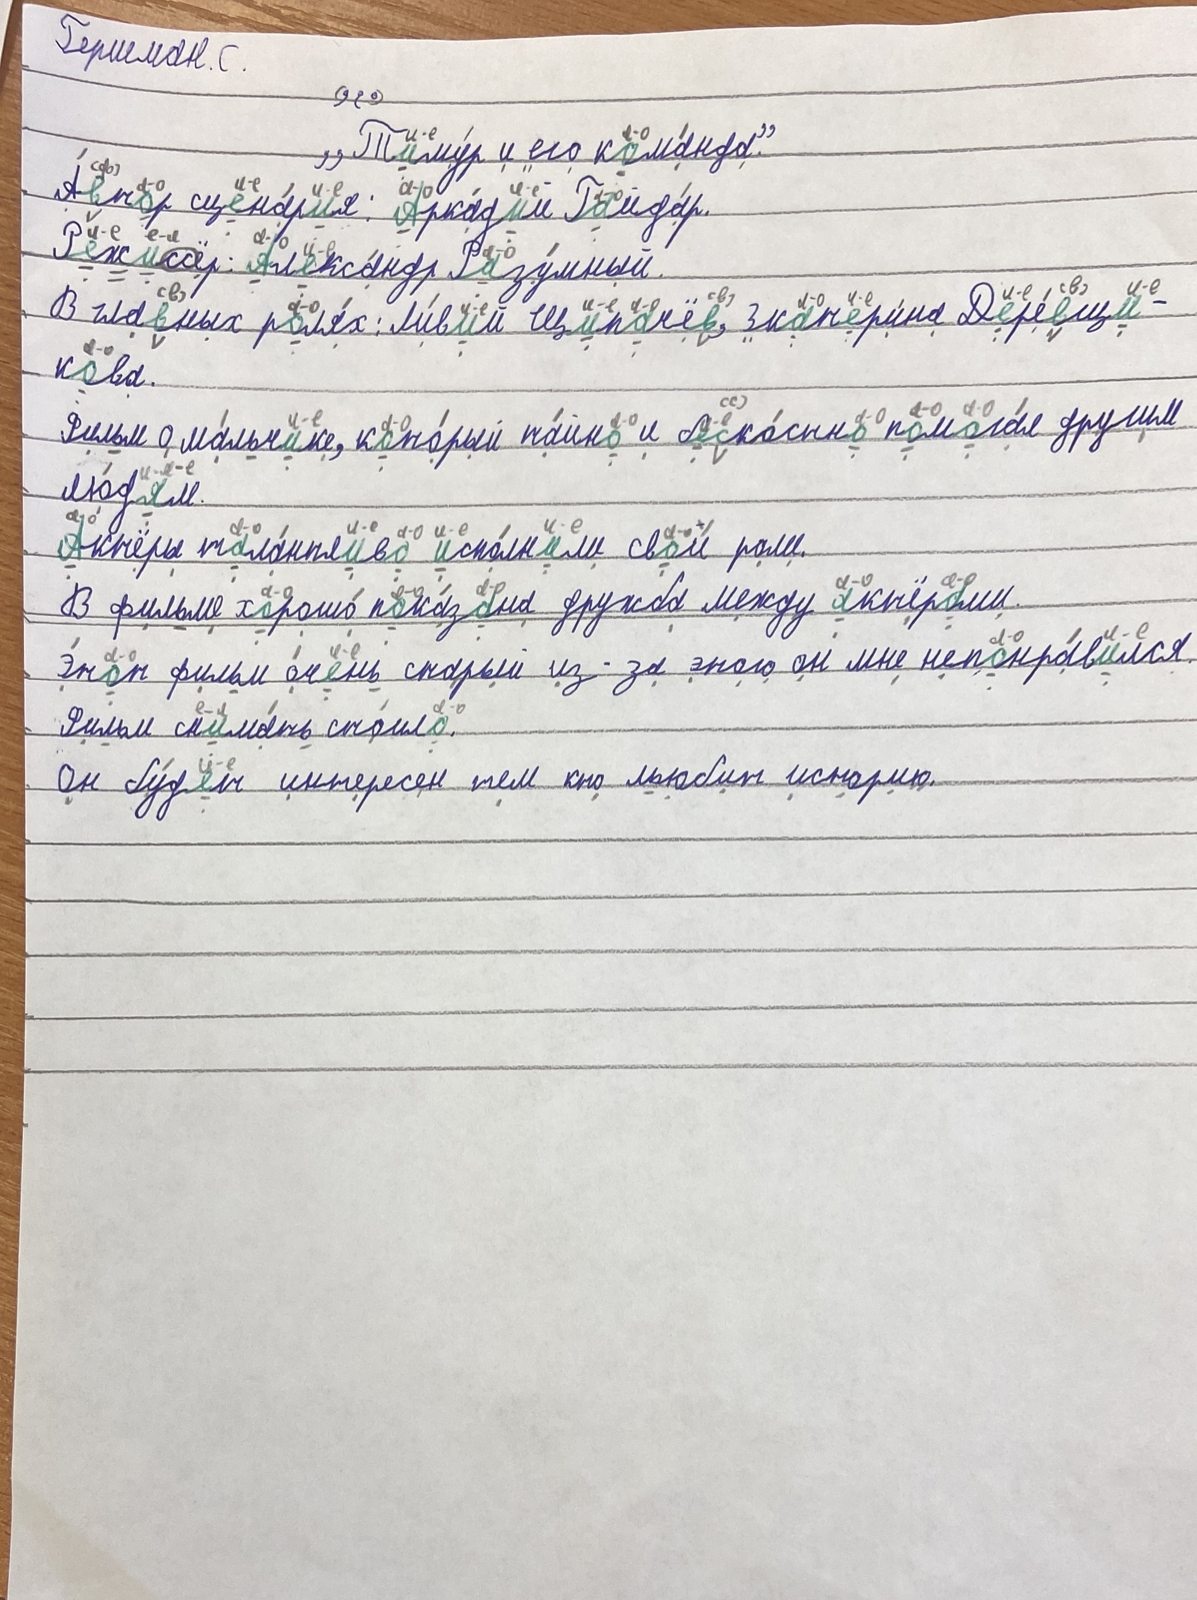 Гершман. С.
„Тимур и его команда”
Автор сценария: Аркадий Гайдар.
Режиссёр: Александр Разумный.
В главных ролях: Ливий Щипачёв, Экатерина Деревщи-
кова.
Фильм о мальчике, который тайно и бескостно помогая другим
людям.
Актёры талантливо исполнили свои роли.
В фильме хорошо показана дружба между актёрами.
Этот фильм очень старый из-за этого он мне непонравился.
Фильм снимать стоило.
Он будет интересен тем кто льюбит историю.